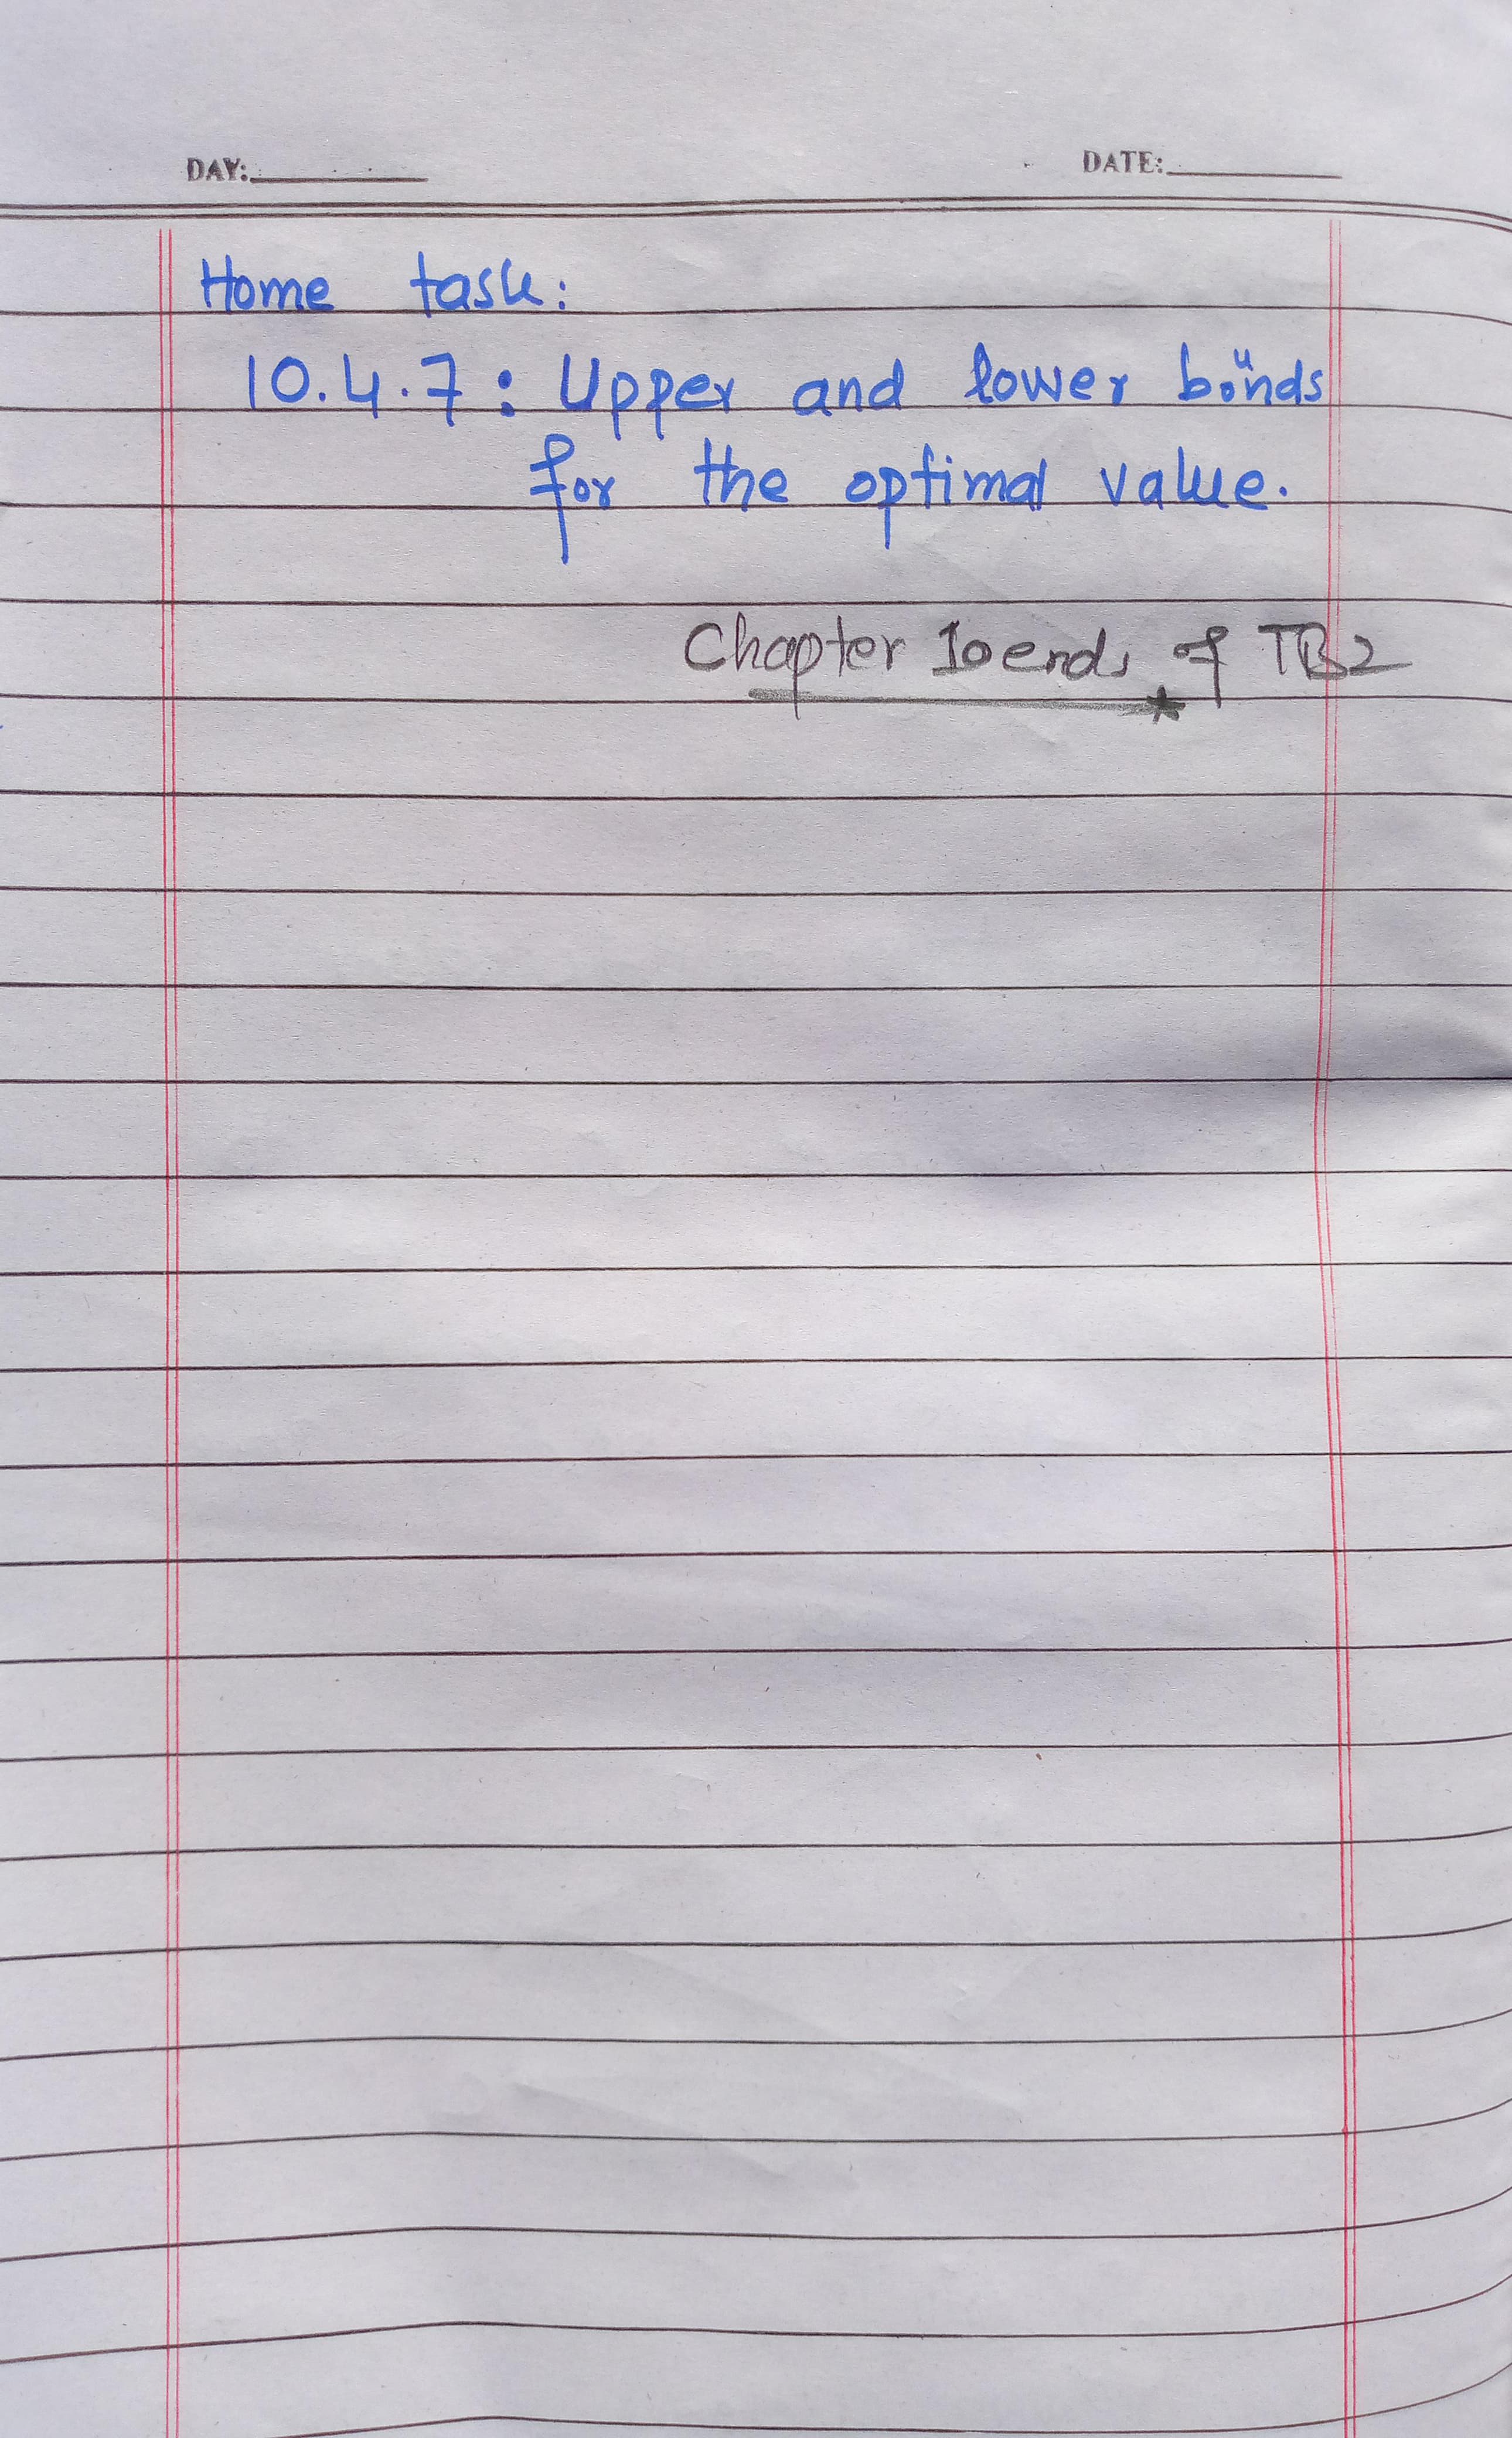 DAY: DATE:
Home task:
10.4.7: Upper and lower bounds
for the optimal value.
Chapter 10 ends of TB2